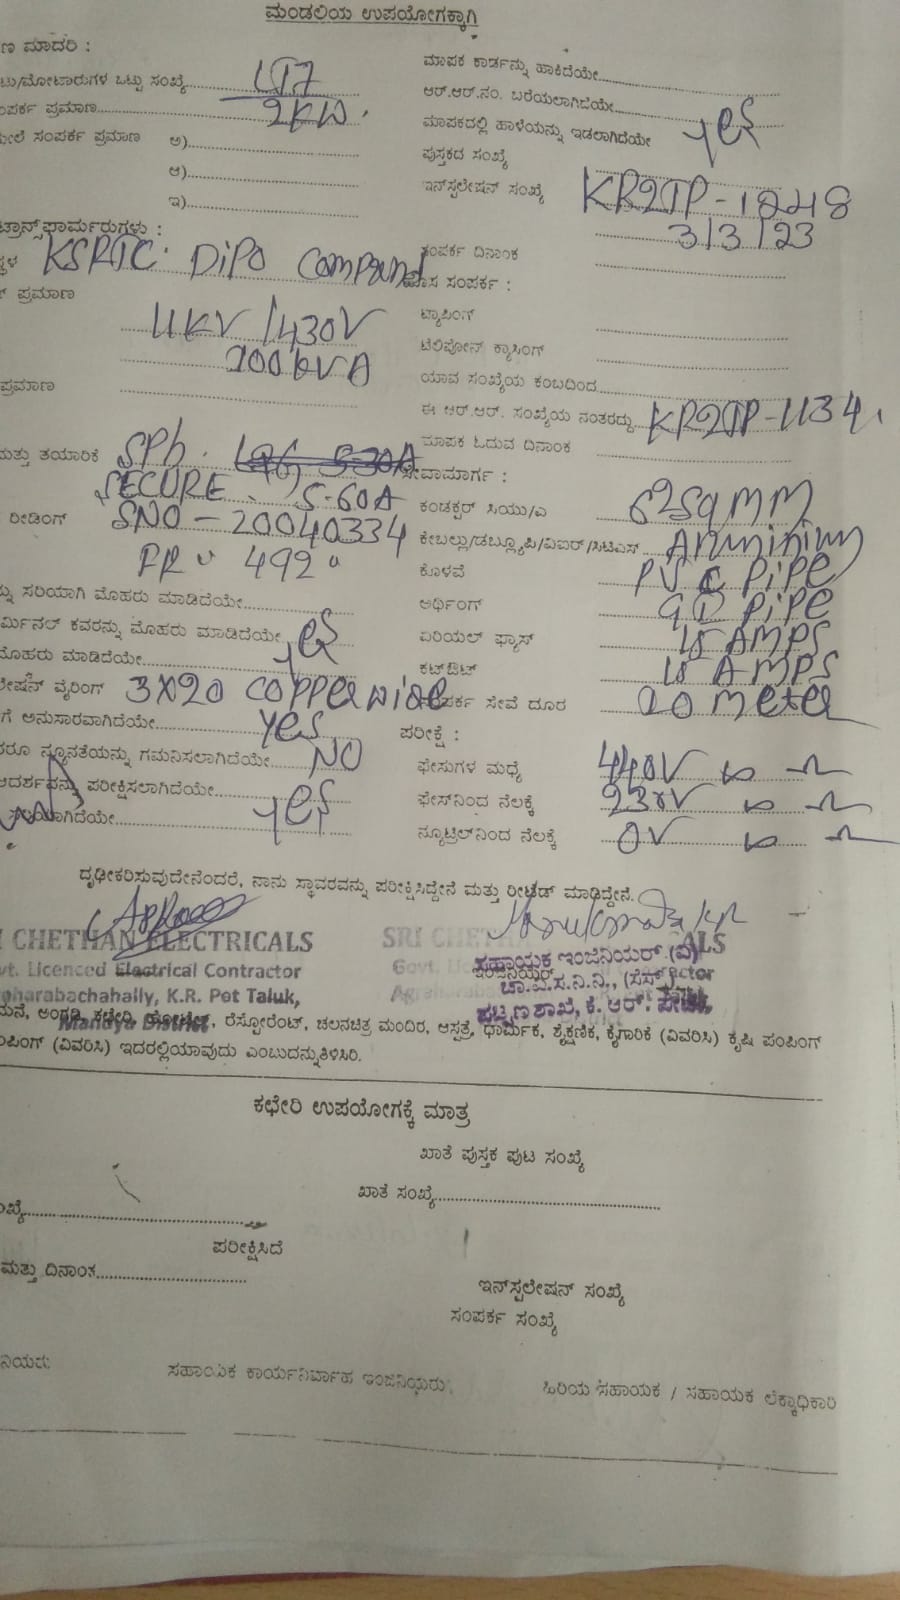 ಮಂಡಲಿಯ ಉಪಯೋಗಕ್ಕಾಗಿ
ಣ ಮಾದರಿ :
ಟು/ಮೋಟಾರುಗಳ ಒಟ್ಟು ಸಂಖ್ಯೆ LT7
ಂಪರ್ಕ ಪ್ರಮಾಣ 2KW.
ಮೇಲೆ ಸಂಪರ್ಕ ಪ್ರಮಾಣ ಅ)
ಆ)
ಇ)
ಟ್ರಾನ್ಸ್‌ಫಾರ್ಮರುಗಳು :
ಸ್ಥಳ KSRTC. DiPO Compound
ಪ್ರಮಾಣ
11KV /430V
100 KVA
ಪ್ರಮಾಣ
ಮತ್ತು ತಯಾರಿಕೆ SPh.
SECURE 5-60A
ರೀಡಿಂಗ್ SNO - 20040334
FR 492
ನ್ನು ಸರಿಯಾಗಿ ಮೊಹರು ಮಾಡಿದೆಯೇ
ರ್ಮಿನಲ್ ಕವರನ್ನು ಮೊಹರು ಮಾಡಿದೆಯೇ yes
ಮೊಹರು ಮಾಡಿದೆಯೇ
ಲೇಷನ್ ವೈರಿಂಗ್ 3X20 Copper wire
ಗೆ ಅನುಸಾರವಾಗಿದೆಯೇ yes
ದರೂ ನ್ಯೂನತೆಯನ್ನು ಗಮನಿಸಲಾಗಿದೆಯೇ NO
ಆದರ್ಶವನ್ನು ಪರೀಕ್ಷಿಸಲಾಗಿದೆಯೇ yes
ಮಾಪಕ ಕಾರ್ಡನ್ನು ಹಾಕಿದೆಯೇ
ಆರ್.ಆರ್.ನಂ. ಬರೆಯಲಾಗಿದೆಯೇ
ಮಾಪಕದಲ್ಲಿ ಹಾಳೆಯನ್ನು ಇಡಲಾಗಿದೆಯೇ yes
ಪುಸ್ತಕದ ಸಂಖ್ಯೆ
ಇನ್‌ಸ್ಟಲೇಷನ್ ಸಂಖ್ಯೆ KR2TP-1248
3/3/23
ಸಂಪರ್ಕ ದಿನಾಂಕ
ಹೊಸ ಸಂಪರ್ಕ :
ಟ್ಯಾಪಿಂಗ್
ಟೆಲಿಫೋನ್ ಕ್ರಾಸಿಂಗ್
ಯಾವ ಸಂಖ್ಯೆಯ ಕಂಬದಿಂದ
ಈ ಆರ್.ಆರ್. ಸಂಖ್ಯೆಯ ನಂತರದ್ದು KR2TP-1134
ಮಾಪಕ ಓದುವ ದಿನಾಂಕ
ಸೇವಾಮಾರ್ಗ :
ಕಂಡಕ್ಟರ್ ಸಿಯು/ಎ sqmm
ಕೇಬಲ್ಲು/ಡಬ್ಲ್ಯೂಪಿ/ವಿಐಆರ್/ಸಿಟಿಎಸ್ Aluminium
ಕೊಳವೆ PVC PiPe
ಅರ್ಥಿಂಗ್ GI PiPe
ಏರಿಯಲ್ ಫ್ಯೂಸ್ 15 AMPS
ಕಟ್‌ಔಟ್ 15 AMPS
ಸಂಪರ್ಕ ಸೇವೆ ದೂರ 20 meter
ಪರೀಕ್ಷೆ :
ಫೇಸುಗಳ ಮಧ್ಯೆ 440V
ಫೇಸ್‌ನಿಂದ ನೆಲಕ್ಕೆ 230V
ನ್ಯೂಟ್ರಲ್‌ನಿಂದ ನೆಲಕ್ಕೆ 0V
ದೃಢೀಕರಿಸುವುದೇನೆಂದರೆ, ನಾನು ಸ್ಥಾವರವನ್ನು ಪರೀಕ್ಷಿಸಿದ್ದೇನೆ ಮತ್ತು ರೀಟೆಡ್ ಮಾಡಿದ್ದೇನೆ.
I CHETHAN ELECTRICALS
vt. Licenced Electrical Contractor
aharabachahally, K.R. Pet Taluk,
Mandya District
SRI CHETHA ALS
ಸಹಾಯಕ ಇಂಜಿನಿಯರ್ (ವಿ)
ಚಾ.ವಿ.ಸ.ನಿ.ನಿ., (ಸೆಸ್ಕ್)
ಪಟ್ಟಣ ಶಾಖೆ, ಕೆ. ಆರ್. ಪೇಟೆ.
ಮನೆ, ಅಂಗಡಿ, ಕಛೇರಿ, ಹೋಟೆಲ್, ರೆಸ್ಟೋರೆಂಟ್, ಚಲನಚಿತ್ರ ಮಂದಿರ, ಆಸ್ಪತ್ರೆ, ಧಾರ್ಮಿಕ, ಶೈಕ್ಷಣಿಕ, ಕೈಗಾರಿಕೆ (ವಿವರಿಸಿ) ಕೃಷಿ ಪಂಪಿಂಗ್
ಂಪಿಂಗ್ (ವಿವರಿಸಿ) ಇದರಲ್ಲಿಯಾವುದು ಎಂಬುದನ್ನುತಿಳಿಸಿರಿ.
ಕಛೇರಿ ಉಪಯೋಗಕ್ಕೆ ಮಾತ್ರ
ಖಾತೆ ಪುಸ್ತಕ ಪುಟ ಸಂಖ್ಯೆ
ಖಾತೆ ಸಂಖ್ಯೆ
ಂಖ್ಯೆ
ಪರೀಕ್ಷಿಸಿದೆ
ಮತ್ತು ದಿನಾಂಕ
ಇನ್‌ಸ್ಟಲೇಷನ್ ಸಂಖ್ಯೆ
ಸಂಪರ್ಕ ಸಂಖ್ಯೆ
ನಿಯರು
ಸಹಾಯಕ ಕಾರ್ಯನಿರ್ವಾಹ ಇಂಜಿನಿಯರು
ಹಿರಿಯ ಸಹಾಯಕ / ಸಹಾಯಕ ಲೆಕ್ಕಾಧಿಕಾರಿ